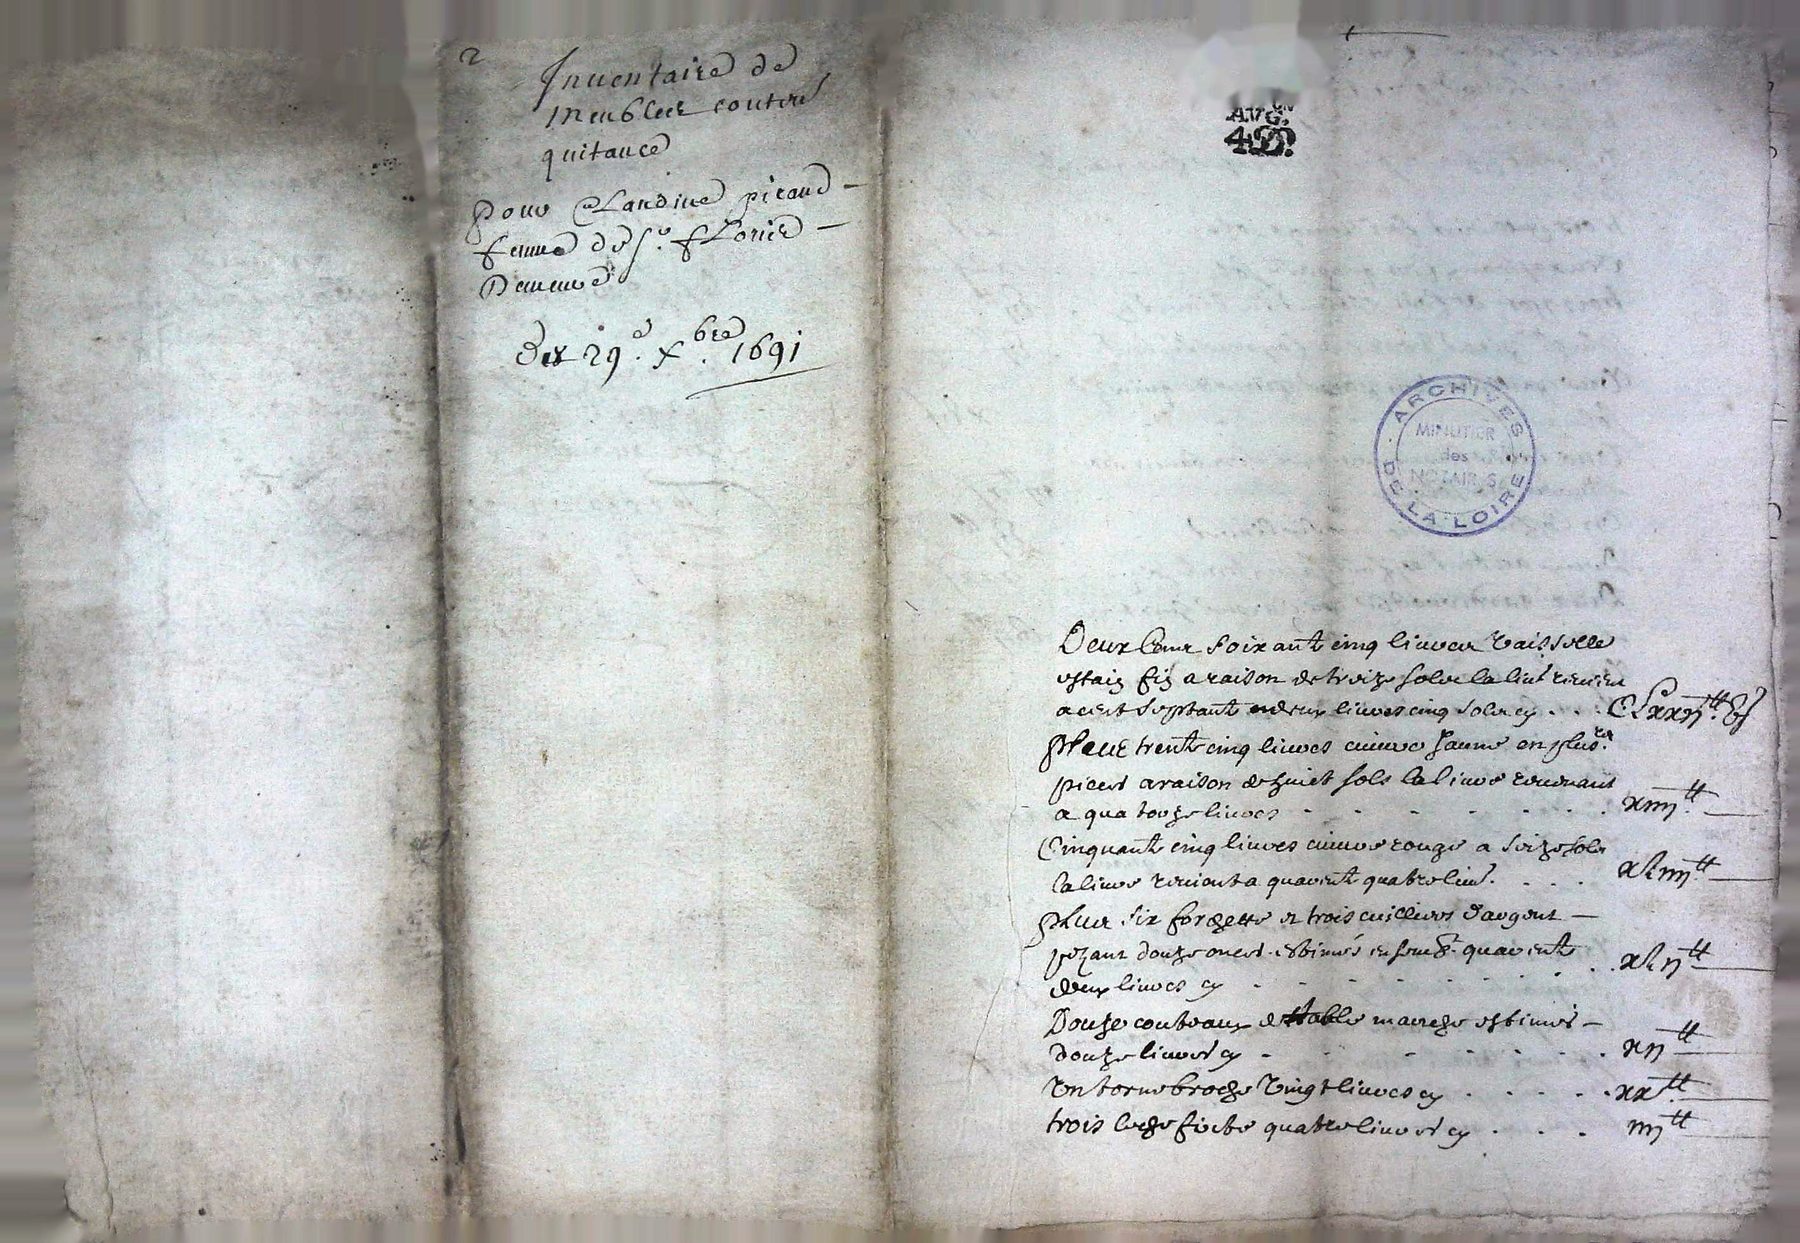 2
Inuentaire de
meubles conten
quitance
Pour Claudine piraud
femme de Sr. fLorie
Du 29e. Xbre. 1691
AVG.
4.D.
ARCHIVES DE LA LOIRE
MINUTIER
des
NOTAIRES
Deux Cens soixante cinq liures Vaisselle
estaing fin a raison de treize solz la liur reuient
a cent septante deux liures cinq solz cy . . . CLxxij tt. 5 s
Plus trente cinq liures cuiure Jaune en plusrs.
pieces a raison de huict sols la liure reuenant
a quatorze liures - - - - - xiiij tt
Cinquante cinq liures cuiure rouge a seize solz
la liure reuient a quarente quatre liur. . . . xLiiij tt
plus six forchette et trois cuilliers d'argent
pezant douze onces estimés ensemb. quarente
deux liures cy - - - - - xLij tt
Douze couteaux de table manche estimés
douze liures cy - - - - - xij tt
Vn torne broche Vingt liures cy . . . . . xx tt.
trois leche fritte quatre liures cy . . . iiij tt